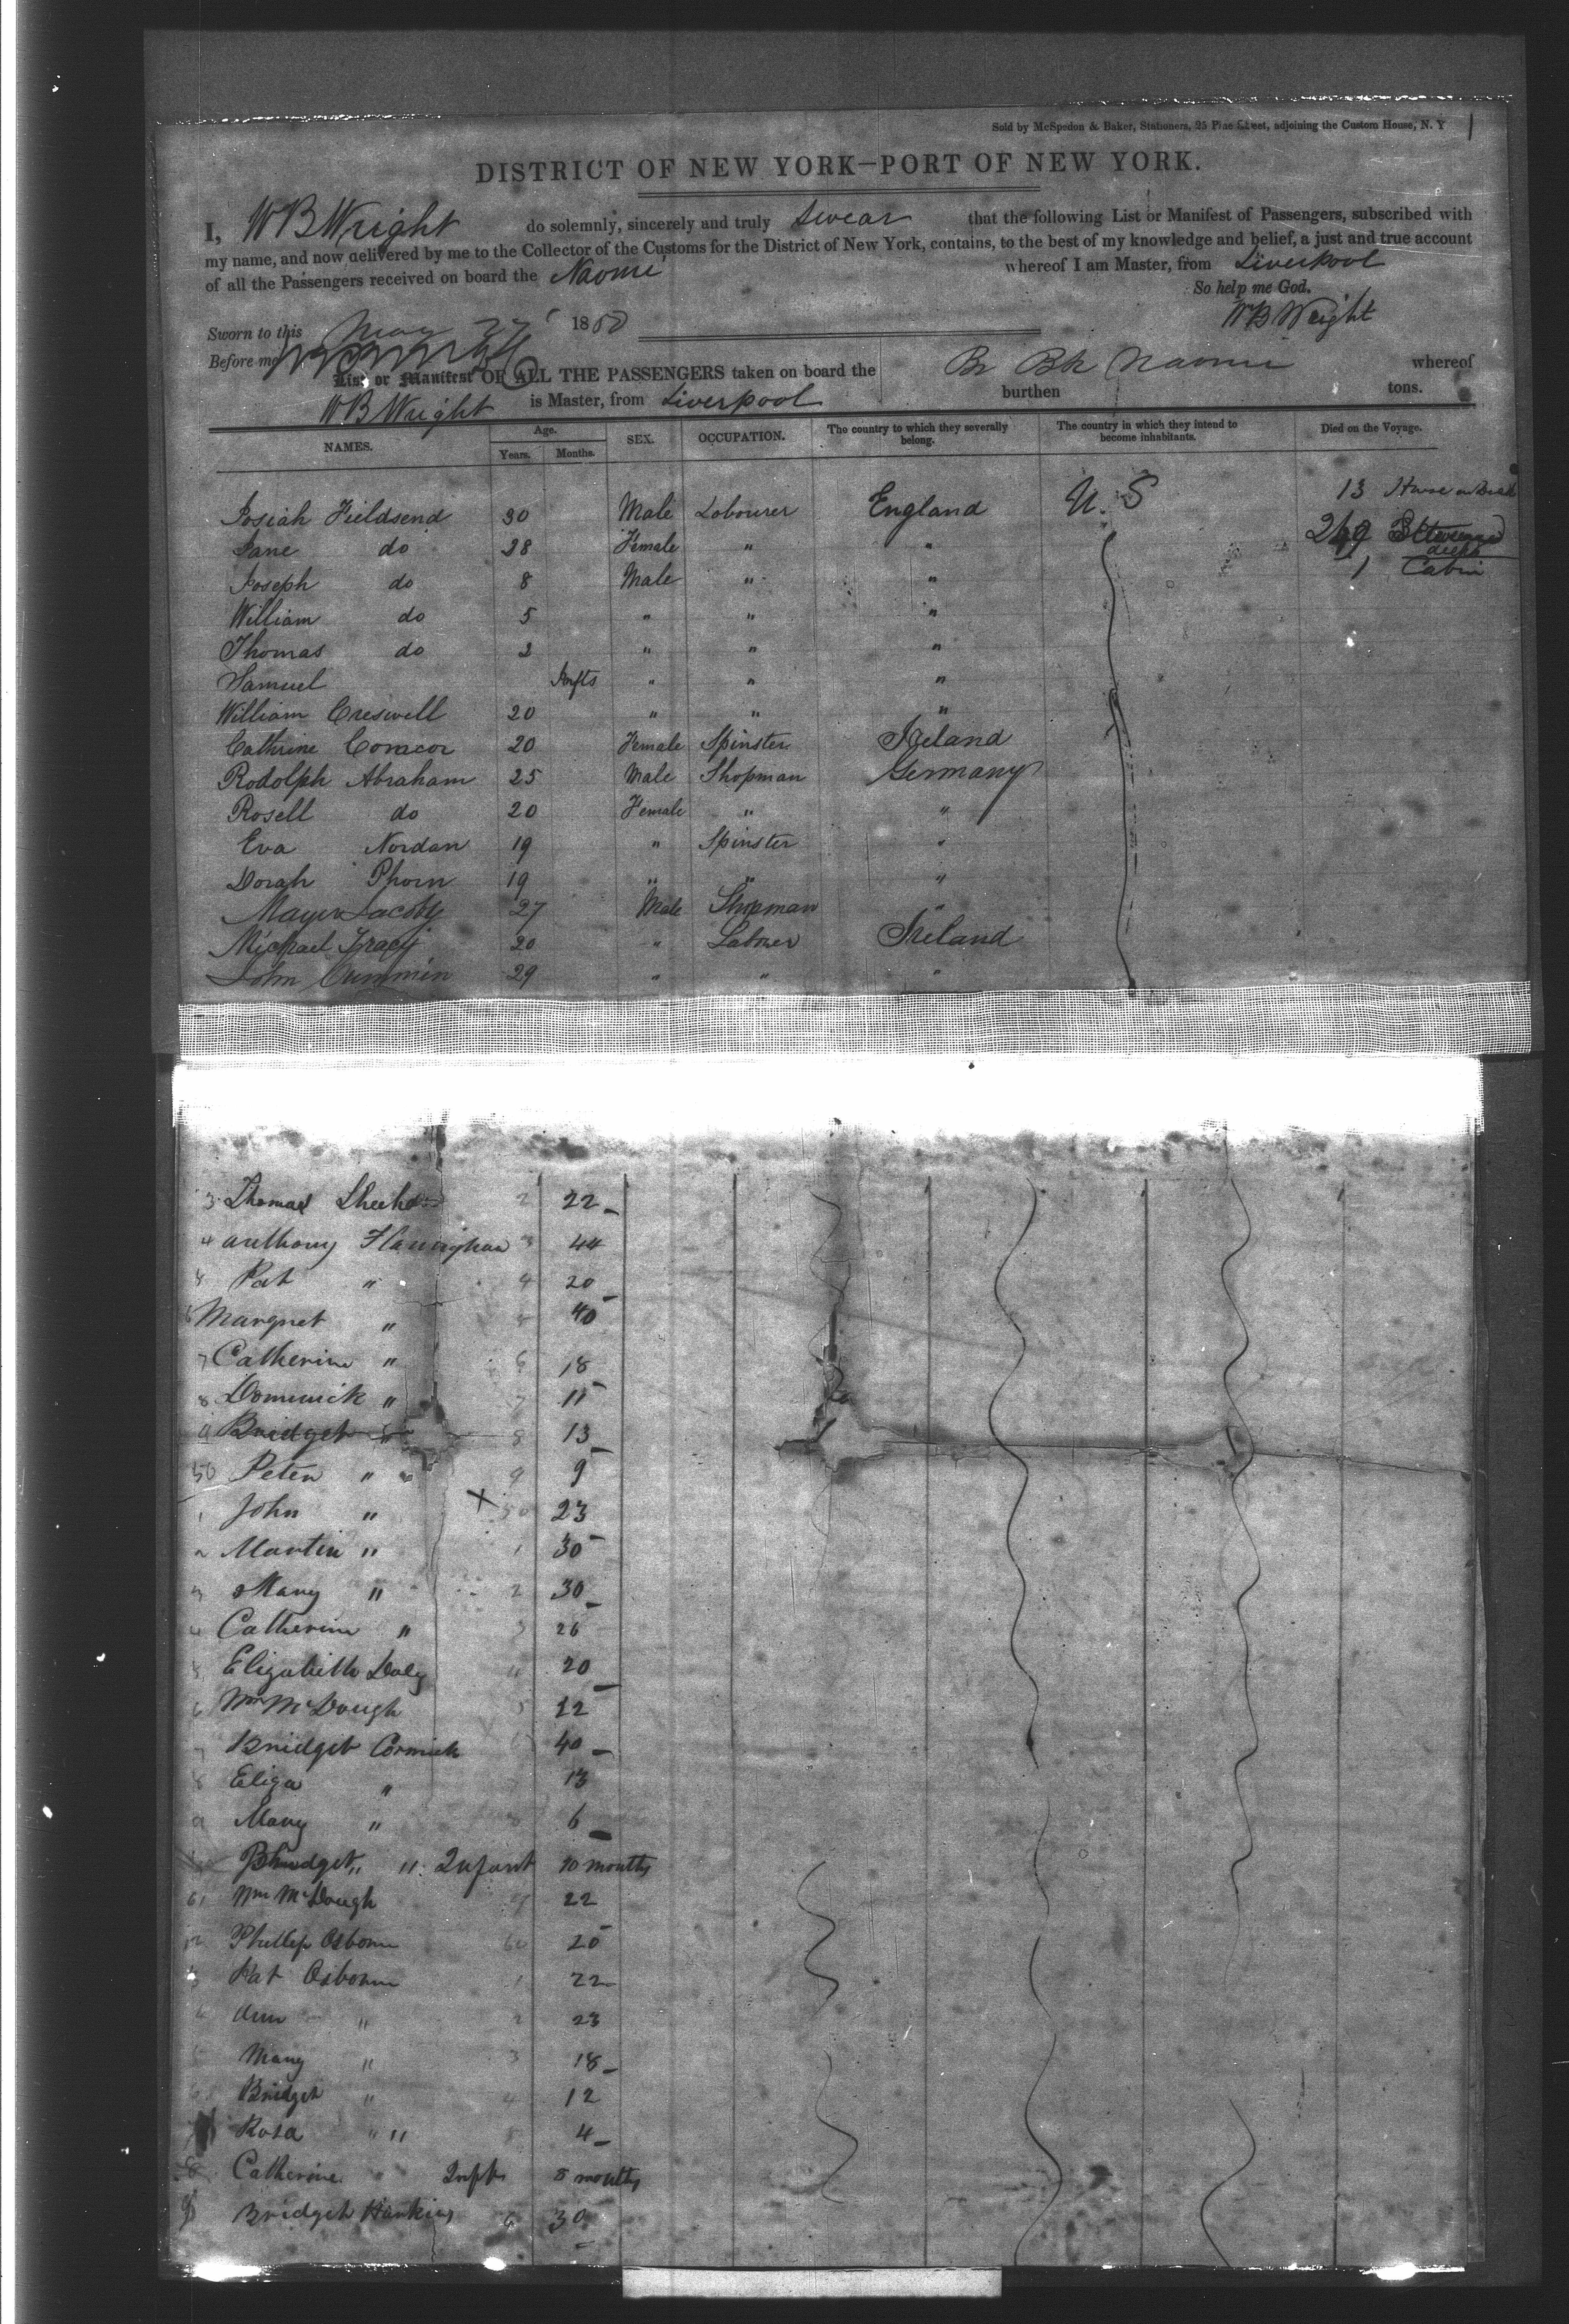 Sold by McSpedon & Baker, Stationers, 25 Pine Street, adjoining the Custom House, N. Y
DISTRICT OF NEW YORK—PORT OF NEW YORK.
I, W B Wright do solemnly, sincerely and truly Swear that the following List or Manifest of Passengers, subscribed with
my name, and now delivered by me to the Collector of the Customs for the District of New York, contains, to the best of my knowledge and belief, a just and true account
of all the Passengers received on board the Naomi whereof I am Master, from Liverpool
So help me God.
Sworn to this May 27 1850 W B Wright
Before me
List or Manifest OF ALL THE PASSENGERS taken on board the Br Bk Naomi whereof
W B Wright is Master, from Liverpool burthen tons.
NAMES. Age. Years. Months. SEX. OCCUPATION. The country to which they severally belong. The country in which they intend to become inhabitants. Died on the Voyage.
Josiah Fieldsend 30 Male Labourer England U. S 13
Jane do 28 Female " "
Joseph do 8 Male " " 1 Cabin
William do 5 " " "
Thomas do 2 " " "
Samuel Infts " " "
William Creswell 20 " " "
Cathrine 20 Female Spinster Ireland
Rodolph Abraham 25 Male Shopman Germany
Rosell do 20 Female " "
Eva Nordan 19 " Spinster "
Dorah Phorn 19 " " "
Mayer Jacoby 27 Male Shopman "
Michael Tracy 20 " Labrer Ireland
John Cummin 29 " " "
3 Thomas 2 22
4 Anthony Flanighan 3 44
Pat " 4 20
Margret " 40
7 Catherine " 6 18
8 Dominick " 7 11
9 Bridget " 8 13
50 Peter " 9 9
1 John " X 50 23
2 Martin " 1 30
3 Mary " 2 30
4 Catherine " 3 26
5 Elizabeth Daly 4 20
6 Wm McDough 5 22
7 Bridget Cormick 6 40
8 Eliza " 13
9 Mary " 6
Bridget " " Infant 10 months
61 Wm McDough 9 22
2 Phillip Osborne 60 20
3 Pat Osborne 1 22
4 Ann " 2 23
Mary " 3 18
6 Bridget " 4 12
Rosa " " 5 4
8 Catherine " Inft 8 months
9 Bridget Harkins 6 30